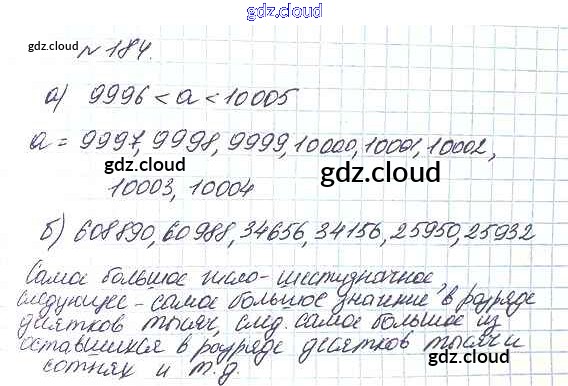 gdz.cloud
gdz.cloud
№ 184.
а) 9996 < a < 10005
a = 9997, 9998, 9999, 10000, 10001, 10002,
gdz.cloud
gdz.cloud
10003, 10004
б) 608890, 60988, 34656, 34156, 25950, 25932
Самое большое число - шестизначное,
следующее - самое большое значение в разряде
десятков тысяч, след. самое большое из
оставшихся в разряде десятков тысяч и
сотнях и т.д.
gdz.cloud
gdz.cloud